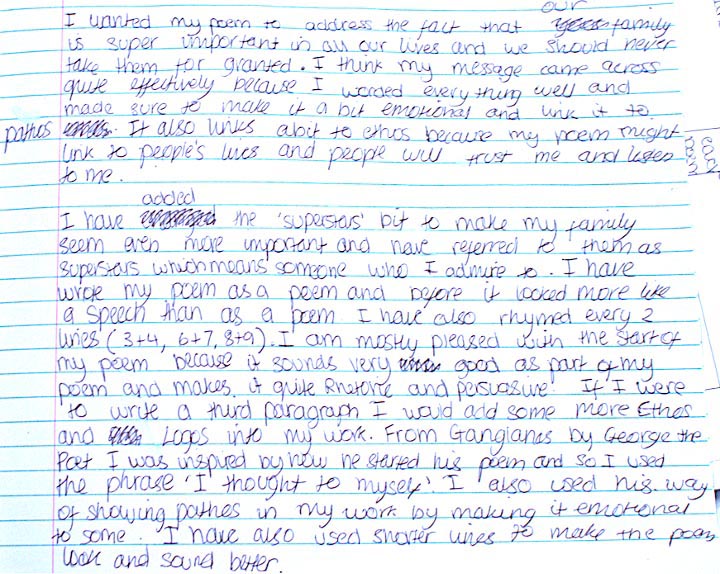 our
I wanted my poem to address the fact that family
is super important in all our lives and we should never
take them for granted. I think my message came across
quite effectively because I worded everything well and
made sure to make it a bit emotional and link it to
pathos. It also links abit to ethos because my poem might
link to people's lives and people will trust me and listen
to me.
added
I have the 'superstars' bit to make my family
seem even more important and have referred to them as
superstars which means someone who I admire to. I have
wrote my poem as a poem and before it looked more like
a speech than as a poem. I have also rhymed every 2
lines (3+4, 6+7, 8+9). I am mostly pleased with the start of
my poem because it sounds very good as part of my
poem and makes it quite Rhetoric and persuasive. If I were
to write a third paragraph I would add some more Ethos
and Logos into my work. From Ganglands by George the
Poet I was inspired by how he started his poem and so I used
the phrase 'I thought to myself'. I also used his way
of showing pathos in my work by making it emotional
to some. I have also used shorter lines to make the poem
look and sound better.